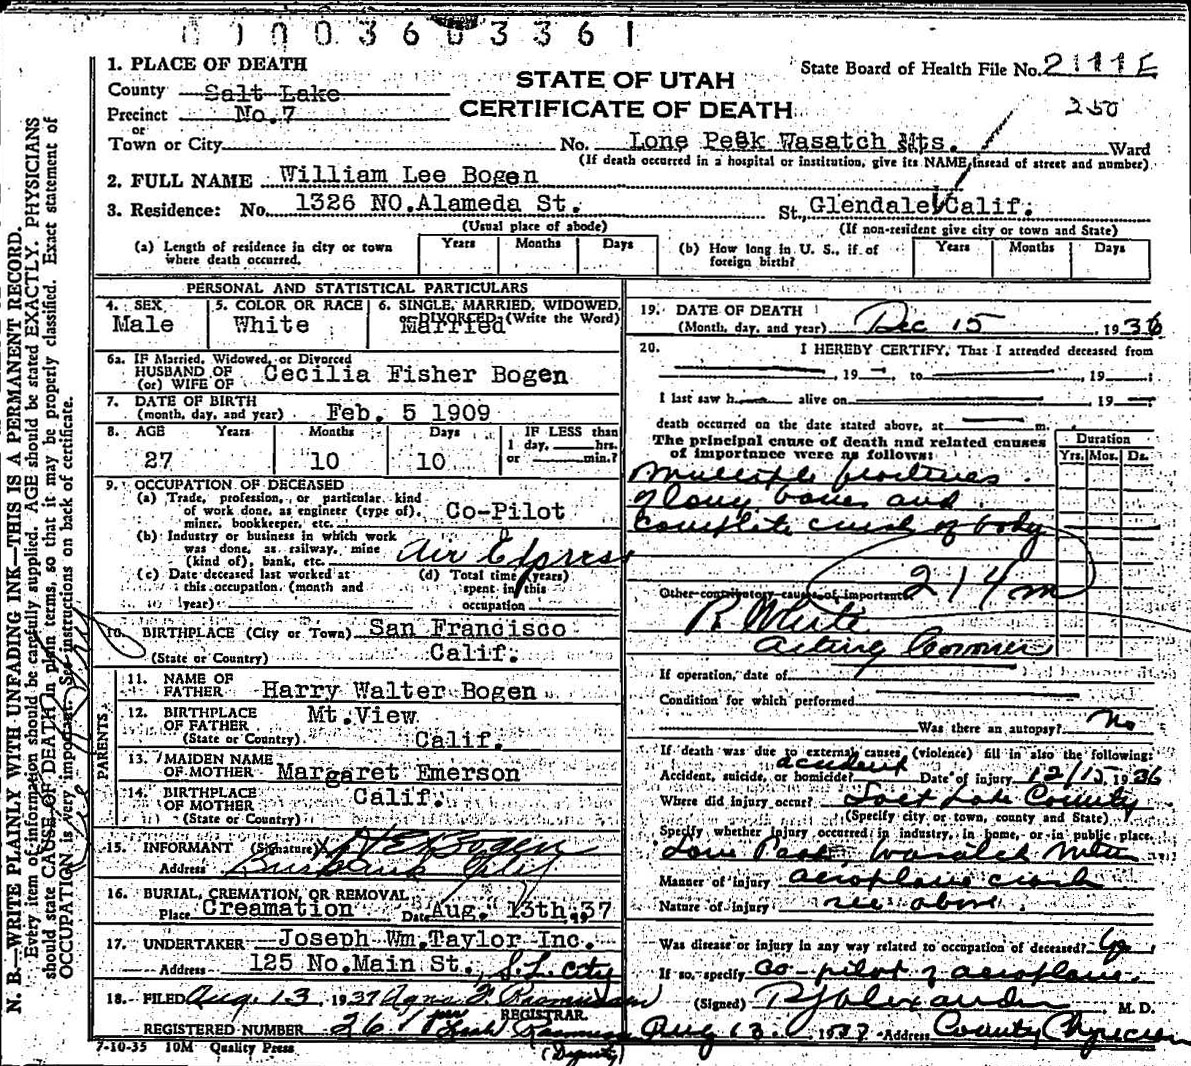 01003603361
1. PLACE OF DEATH
STATE OF UTAH
CERTIFICATE OF DEATH
State Board of Health File No.
250
County Salt Lake
Precinct No.7
or
Town or City
No. Lone Peak Wasatch Mts. Ward
(If death occurred in a hospital or institution, give its NAME insead of street and number)
2. FULL NAME William Lee Bogen
3. Residence: No. 1326 NO.Alameda St. St., Glendale Calif.
(Usual place of abode) (If non-resident give city or town and State)
(a) Length of residence in city or town where death occurred. Years Months Days
(b) How long in U. S., if of foreign birth? Years Months Days
PERSONAL AND STATISTICAL PARTICULARS
4. SEX 5. COLOR OR RACE 6. SINGLE, MARRIED, WIDOWED,
or DIVORCED (Write the Word)
Male White Married
6a. IF Married, Widowed, or Divorced
HUSBAND OF
(or) WIFE OF Cecilia Fisher Bogen
7. DATE OF BIRTH
(month, day, and year) Feb. 5 1909
8. AGE Years Months Days IF LESS than
1 day, hrs.
or min.?
27 10 10
9. OCCUPATION OF DECEASED
(a) Trade, profession, or particular kind
of work done, as engineer (type of),
miner, bookkeeper, etc. Co-Pilot
(b) Industry or business in which work
was done, as railway, mine
(kind of), bank, etc. Air Express
(c) Date deceased last worked at
this occupation. (month and
year)
(d) Total time (years)
spent in this
occupation
10. BIRTHPLACE (City or Town) San Francisco
(State or Country) Calif.
PARENTS
11. NAME OF
FATHER Harry Walter Bogen
12. BIRTHPLACE
OF FATHER Mt.View
(State or Country) Calif.
13. MAIDEN NAME
OF MOTHER Margaret Emerson
14. BIRTHPLACE
OF MOTHER Calif.
(State or Country)
15. INFORMANT (Signature) Bogen
Address Burbank
16. BURIAL, CREMATION, OR REMOVAL
Place Creamation Date Aug. 13th, 37
17. UNDERTAKER Joseph Wm.Taylor Inc.
Address 125 No.Main St., S.L. City
18. FILED Aug. 13 1937 Rasmussen
REGISTRAR.
REGISTERED NUMBER 261 per
(Deputy)
7-10-35 10M Quality Press
19. DATE OF DEATH
(Month, day, and year) Dec 15 1936
20. I HEREBY CERTIFY, That I attended deceased from
, 19 , to , 19 ;
I last saw h alive on , 19 ;
death occurred on the date stated above, at m.
The principal cause of death and related causes
of importance were as follows:
Duration
Yrs. Mos. Ds.
Multiple fractures
of long bones and
complete crush of body
214m
Other contributory causes of importance:
R. White
Acting Coroner
If operation, date of
Condition for which performed
Was there an autopsy? No
If death was due to external causes, (violence) fill in also the following:
Accident, suicide, or homicide? accident Date of injury 12/15 1936
Where did injury occur? Salt Lake County
(Specify city or town, county and State)
Specify whether injury occurred in industry, in home, or in public place.
Lone Peak, Wasatch Mtn
Manner of injury aeroplane crash
Nature of injury see above.
Was disease or injury in any way related to occupation of deceased? Yes
If so, specify co-pilot of aeroplane.
(Signed) Alexander M. D.
Aug 13. 1937 Address County Physician
N. B.—WRITE PLAINLY WITH UNFADING INK—THIS IS A PERMANENT RECORD.
Every item of information should be carefully supplied. AGE should be stated EXACTLY. PHYSICIANS
should state CAUSE OF DEATH in plain terms, so that it may be properly classified. Exact statement of
OCCUPATION is very important. See instructions on back of certificate.